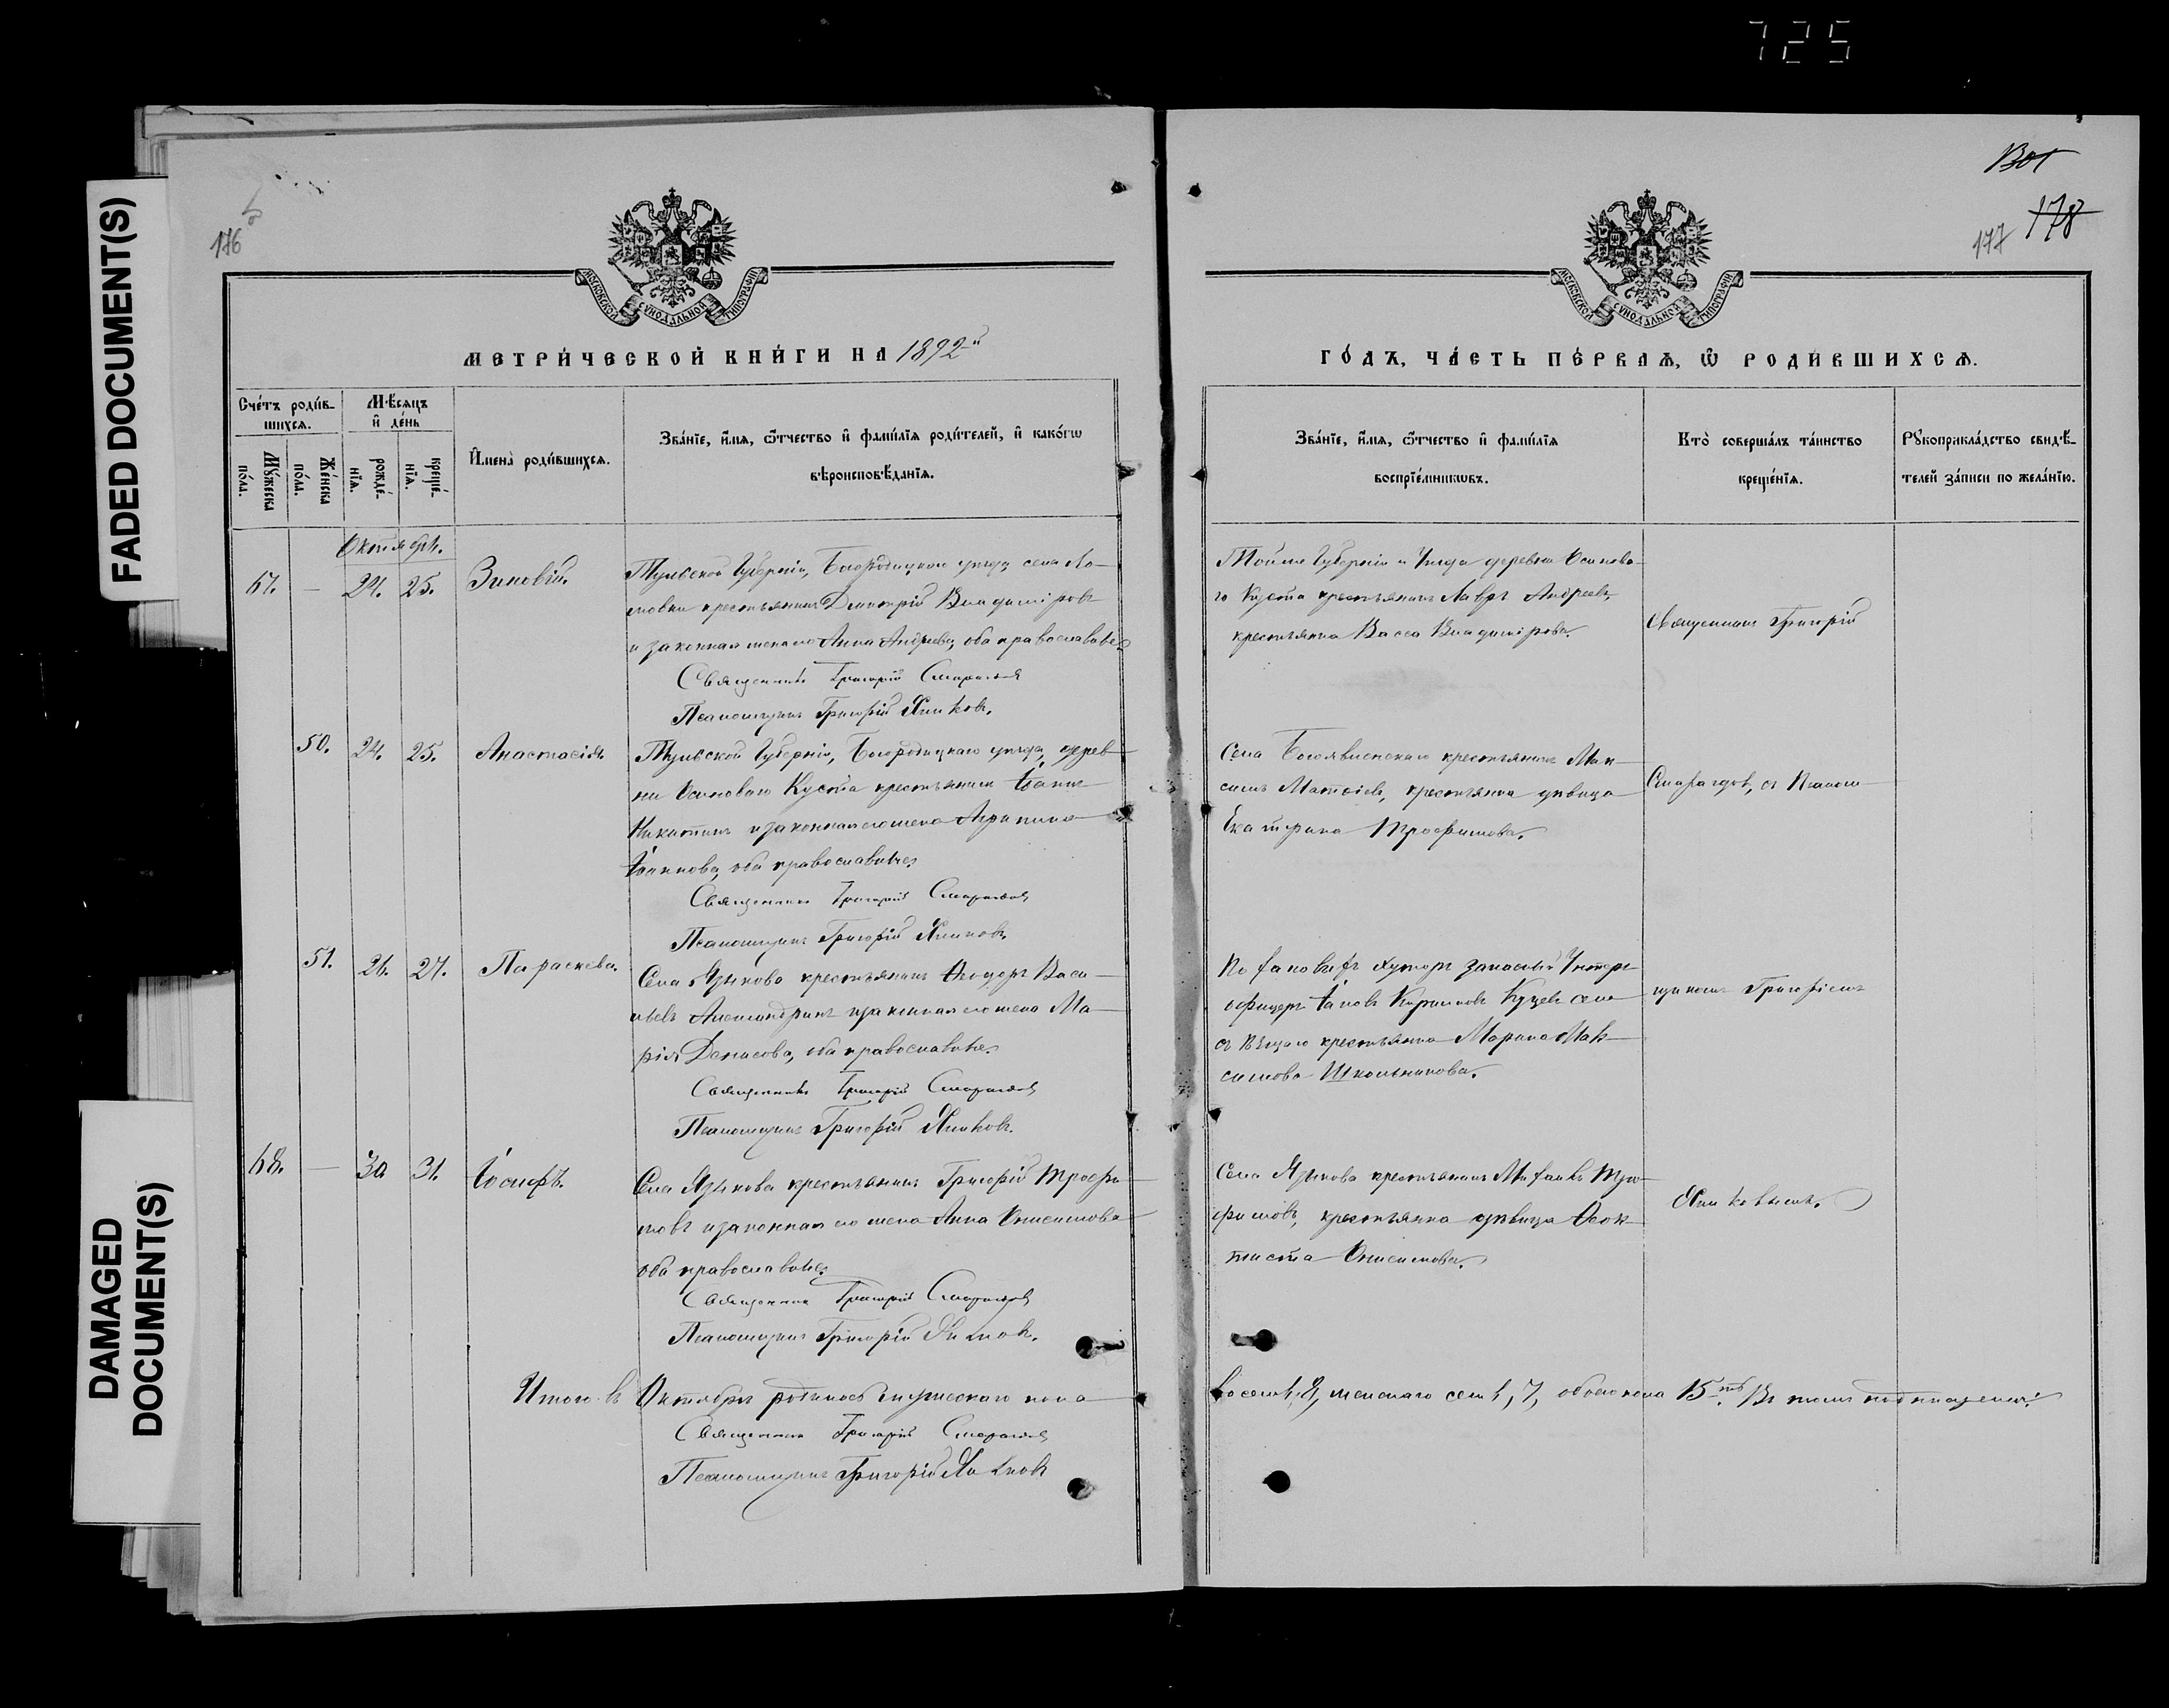 725
FADED DOCUMENT(S)
DAMAGED
DOCUMENT(S)
176
МОСКОВСКОЙ СѴНОДАЛЬНОЙ ТИПОГРАФІИ
МЕТРИ́ЧЕСКОЙ КНИ́ГИ НА 1892й
Сче́тъ роди́в-
шихся.
Мꙋ́жеска
по́ла.
Же́нска
по́ла.
Мѣ́сяцъ
и҆ де́нь
рожде́-
нїѧ.
креще́-
нїѧ.
И҆мена̀ роди́вшихсѧ.
Зва́нїе, и҆́мѧ, ѻ҆́тчество и҆ фами́лїѧ роди́телей, и҆ како́гѡ
вѣроисповѣ́данїѧ.
Октябрь.
67. — 24. 25. Зиновій.
Тульской Губерніи, Богородицкаго уѣзда, села Ло-
мовки крестьянинъ Димитрій Владиміровъ
и законная жена его Анна Андреева, оба православные
Священникъ Григорій Смарагдов
Псаломщикъ Григорій Хилковъ.
50. 24. 25. Анастасія.
Тульской Губерніи, Богородицкаго уѣзда, дерев-
ни Осиноваго Куста крестьянинъ Іоаннъ
Никитинъ и законная его жена Агрипина
Іоаннова, оба православные.
Священникъ Григорій Смарагдов
Псаломщикъ Григорій Хилковъ.
51. 26. 27. Параскева.
Села Языкова крестьянинъ Ѳеодоръ Васи-
льевъ Александринъ и законная его жена Ма-
рія Денисова, оба православные.
Священникъ Григорій Смарагдов
Псаломщикъ Григорій Хилковъ.
68. — 30 31. Іосифъ.
Села Языкова крестьянинъ Григорій Трофи-
мовъ и законная его жена Анна Онисимова
оба православные.
Священникъ Григорій Смарагдов
Псаломщикъ Григорій Хилковъ.
Итого въ Октябрѣ родилось мужескаго пола
Священникъ Григорій Смарагдов
Псаломщикъ Григорій Хилковъ
178
177
МОСКОВСКОЙ СѴНОДАЛЬНОЙ ТИПОГРАФІИ
ГО́ДЪ, ЧА́СТЬ ПЕ́РВАѦ, Ѿ РОДИ́ВШИХСѦ.
Зва́нїе, и҆́мѧ, ѻ҆́тчество и҆ фами́лїѧ
воспрїе́мникѡвъ.
Кто̀ соверша́лъ та́инство
креще́нїѧ.
Рꙋкоприкла́дство свидѣ́-
телей за́писи по жела́нїю.
Той же Губерніи и Уѣзда деревни Осинова-
го Куста крестьянинъ Лавръ Андреевъ,
крестьянка Васса Владимірова.
Священникъ Григорій
Села Богоявленскаго крестьянинъ Мак-
симъ Матвѣевъ, крестьянка дѣвица
Екатерина Трофимова.
Смарагдов, съ Псалом-
хуторъ запасный Унтеръ
офицеръ Іаковъ Кирилловъ
крестьянка Марина Мак-
симова Школьникова.
щикомъ Григоріемъ
Села Языкова крестьянинъ Тро-
фимовъ, крестьянка дѣвица Ѳеок-
тиста Онисимова.
Хилковымъ.
восемь, 8, женскаго семь, 7, обоего пола 15ть. Въ томъ подписуемся: